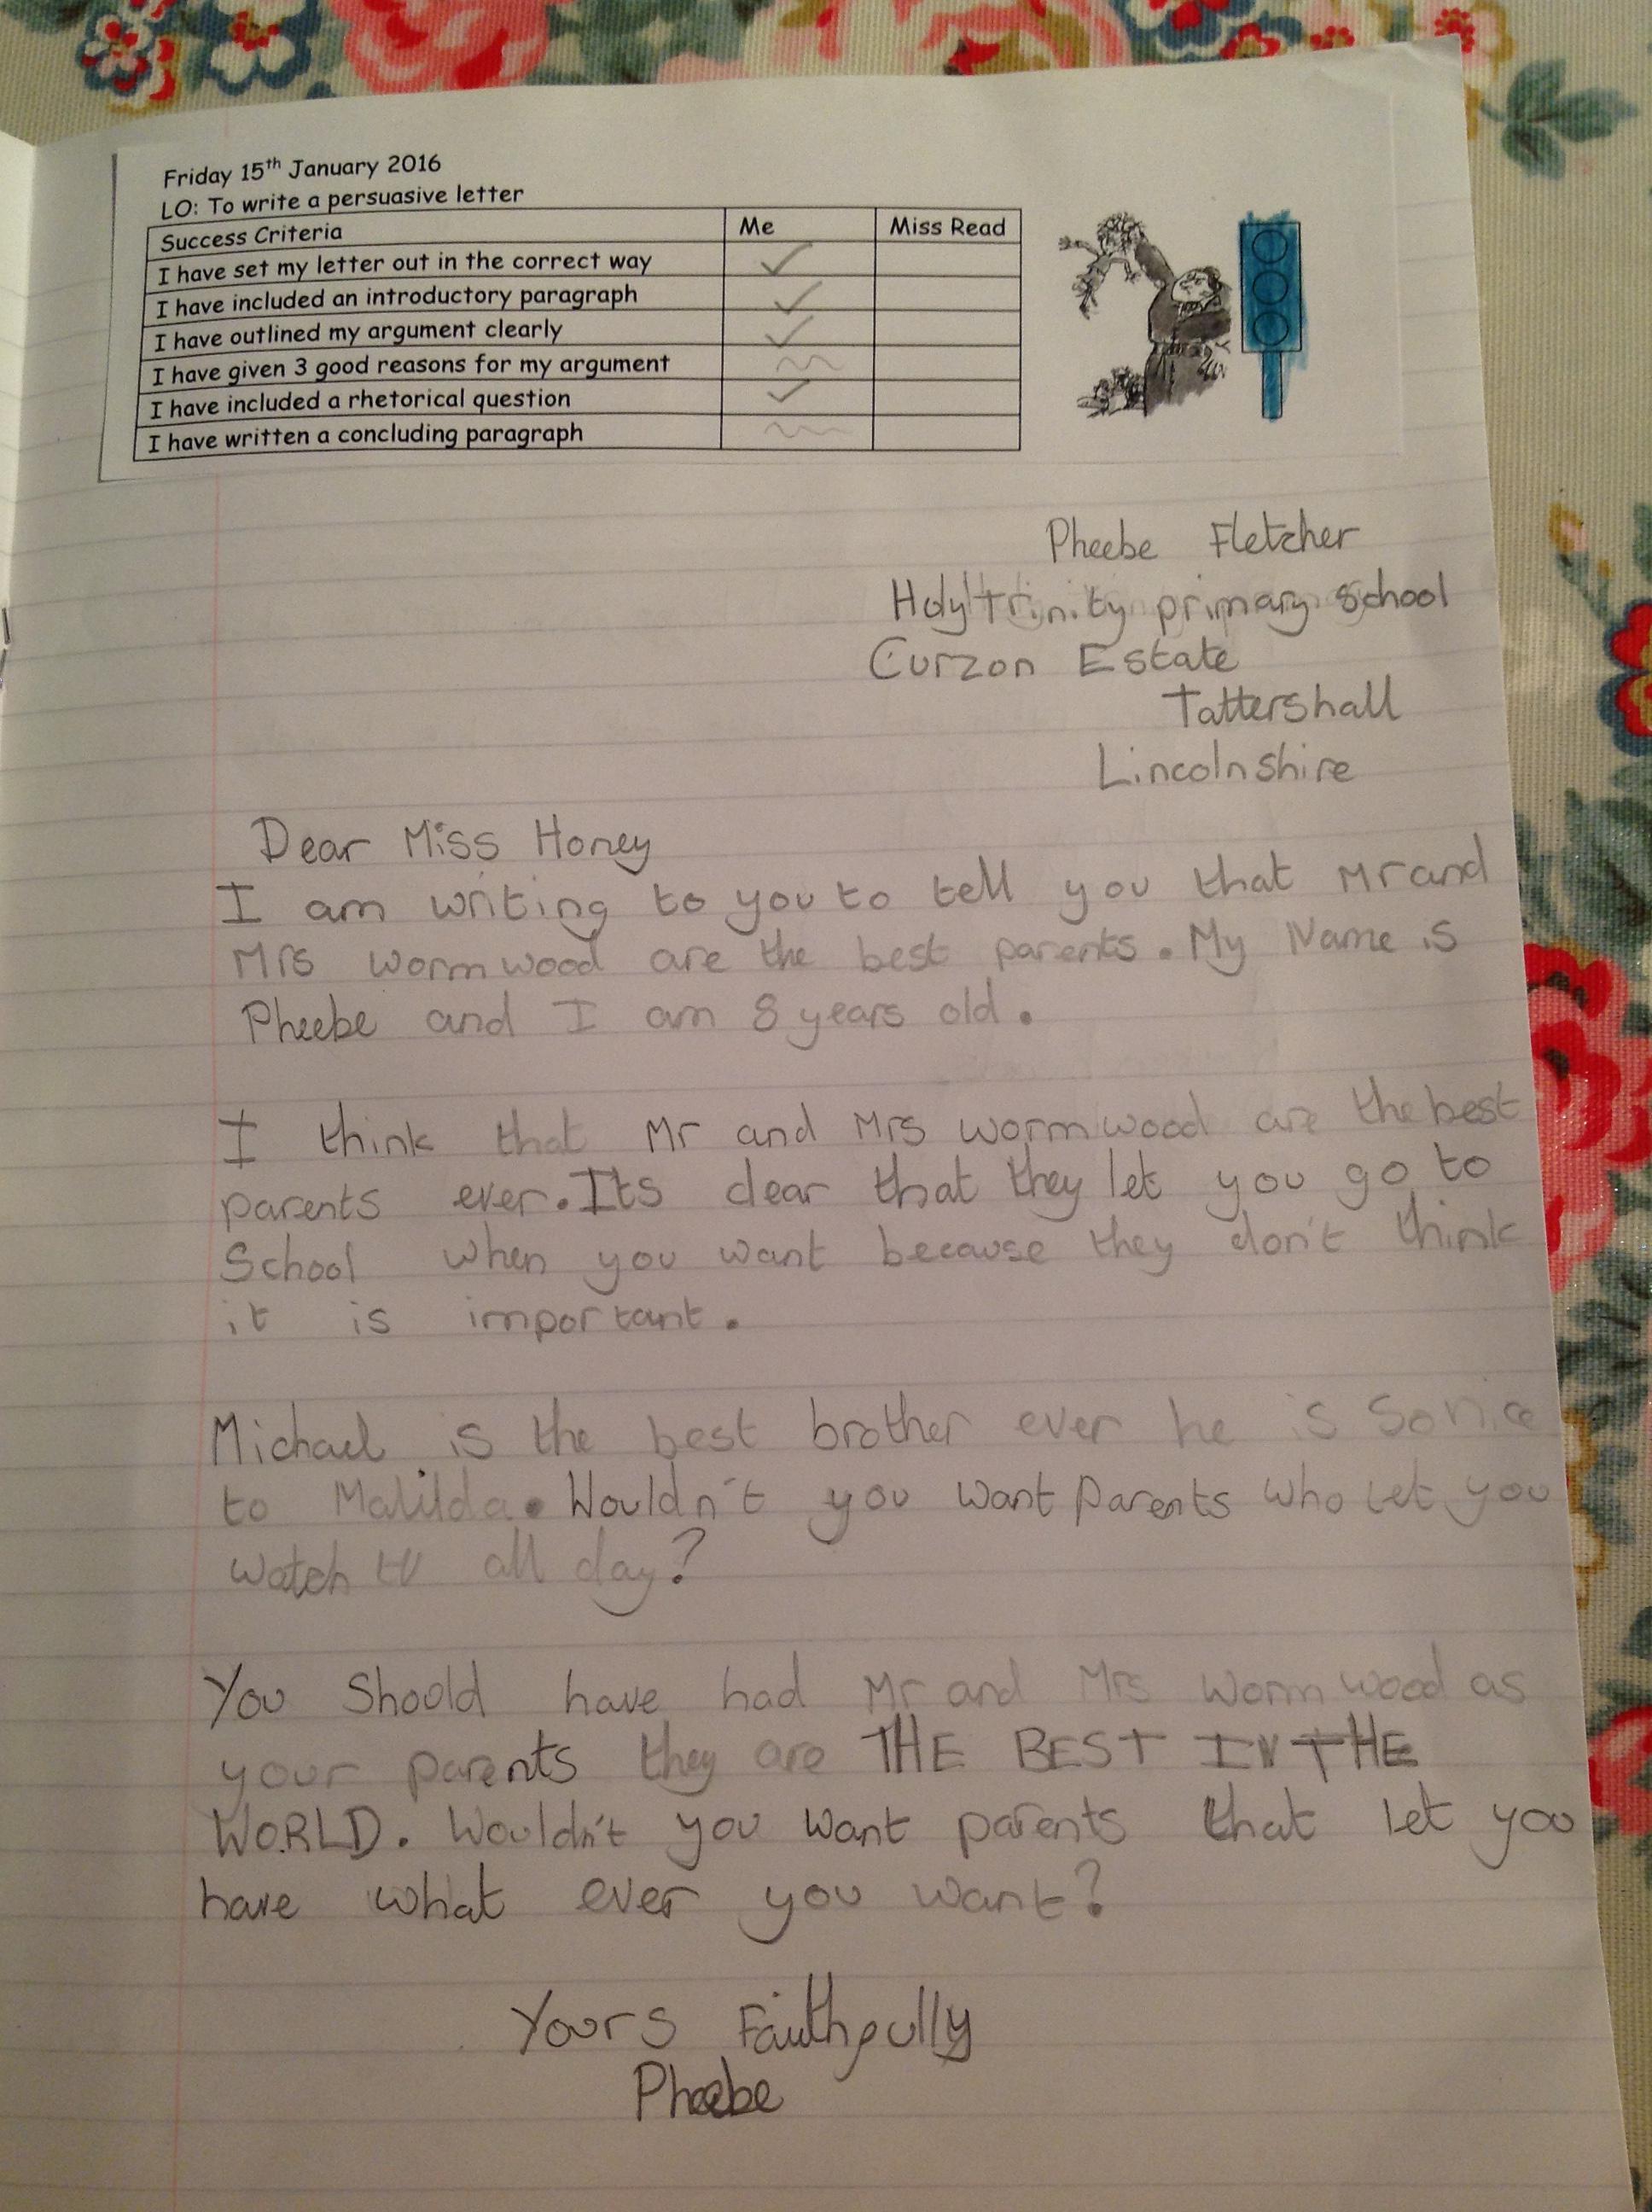 Friday 15th January 2016
LO: To write a persuasive letter
Success Criteria Me Miss Read
I have set my letter out in the correct way ✓
I have included an introductory paragraph ✓
I have outlined my argument clearly ✓
I have given 3 good reasons for my argument ~
I have included a rhetorical question ✓
I have written a concluding paragraph ~
Pheebe Fletcher
Holy trinity primary School
Curzon Estate
Tattershall
Lincolnshire
Dear Miss Honey
I am writing to you to tell you that Mr and
Mrs wormwood are the best parents. My Name is
Pheebe and I am 8 years old.
I think that Mr and Mrs wormwood are the best
parents ever. Its clear that they let you go to
School when you want because they don't think
it is important.
Michael is the best brother ever he is So nice
to Matilda. Wouldn't you want parents who Let you
watch tv all day?
You Should have had Mr and Mrs Wormwood as
your parents they are THE BEST IN THE
WORLD. Wouldn't you want parents that let you
have what ever you want?
Yours Faithfully
Phoebe